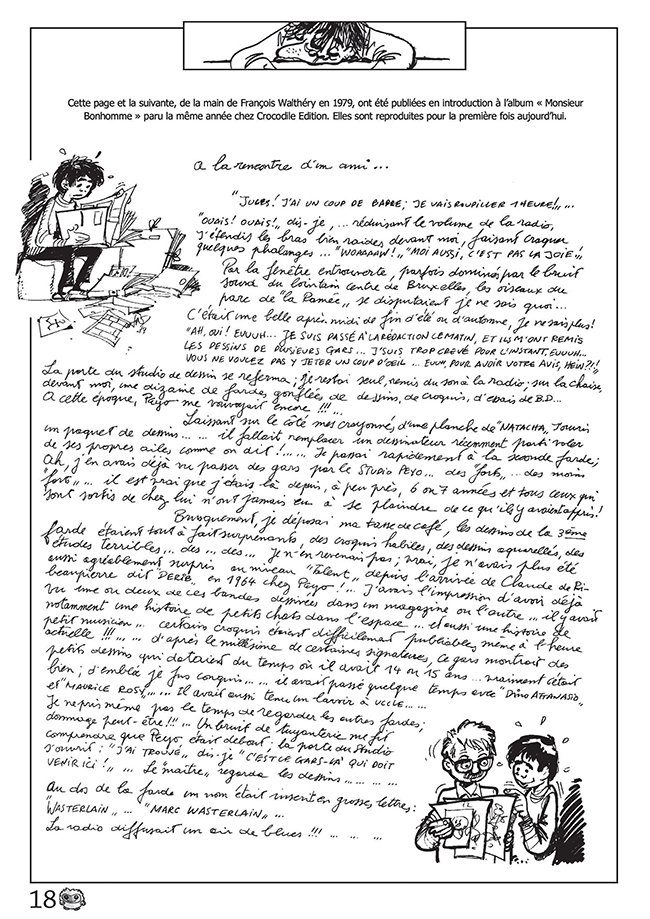 Cette page et la suivante, de la main de François Walthéry en 1979, ont été publiées en introduction à l'album « Monsieur
Bonhomme » paru la même année chez Crocodile Edition. Elles sont reproduites pour la première fois aujourd'hui.
A la rencontre d'un ami...
"JULES! J'AI UN COUP DE BARRE; JE VAIS ROUPILLER 1 HEURE!„...
"OUAIS! OUAIS!„ dis-je, ... réduisant le volume de la radio,
J'étendis les bras bien raides devant moi, faisant craquer
quelques phalanges... "WOAAAAW!„ "MOI AUSSI, C'EST PAS LA JOIE!„
Par la fenêtre entrouverte, parfois dominés par le bruit
sourd du lointain centre de Bruxelles, les oiseaux du
parc de "la Ramée„ se disputaient je ne sais quoi...
C'était une belle après-midi de fin d'été ou d'automne, je ne sais plus!
"AH, OUI! EUUUH... JE SUIS PASSÉ À LA RÉDACTION CE MATIN, ET ILS M'ONT REMIS
LES DESSINS DE PLUSIEURS GARS... J'SUIS TROP CREVÉ POUR L'INSTANT, EUUUH...
VOUS NE VOULEZ PAS Y JETER UN COUP D'OEIL... EUUH, POUR AVOIR VOTRE AVIS, HEIN?!„
La porte du studio de dessin se referma; je restai seul, remis du son à la radio; sur la chaise,
devant moi, une dizaine de fardes gonflées de dessins, de croquis, d'essais de B.D...
A cette époque, Peyo me vouvoyait encore !!!...
Laissant sur le côté mes crayonnés d'une planche de "NATACHA, J'ouvris
un paquet de dessins... ... il fallait remplacer un dessinateur récemment parti voler
de ses propres ailes comme on dit!...... Je passai rapidement à la seconde farde;
Ah, j'en avais déjà vu passer des gars par le STUDIO PEYO... des "forts„ ... des moins
"forts„... il est vrai que j'étais là depuis, à peu près, 6 ou 7 années et tous ceux qui
sont sortis de chez lui n'ont jamais eu à se plaindre de ce qu'ils y avaient appris!
Brusquement, je déposai ma tasse de café, les dessins de la 3ème
farde étaient tout à fait surprenants, des croquis habiles, des dessins aquarellés, des
études terribles... des... des... Je n'en revenais pas; vrai, je n'avais plus été
aussi agréablement surpris au niveau "Talent„ depuis l'arrivée de Claude de Ri-
beaupierre dit "DERIB„ en 1964 chez Peyo!... J'avais l'impression d'avoir déjà
vu une ou deux de ces bandes dessinées dans un magazine ou l'autre... il y avait
notamment une histoire de petits chats dans l'espace... et aussi une histoire de
petit musicien... certains croquis étaient difficilement publiables, même à l'heure
actuelle !!!... ... d'après le millésime de certaines signatures, ce gars montrait des
petits dessins qui dataient du temps où il avait 14 ou 15 ans... vraiment c'était
bien; d'emblée je fus conquis...... il avait passé quelque temps avec "DINO ATTANASIO„
et "MAURICE ROSY„... Il avait aussi tenu un lavoir à UCCLE......
Je ne pris même pas le temps de regarder les autres fardes;
dommage peut-être!!!... Un bruit de tuyauterie me fit
comprendre que Peyo était debout; la porte du studio
s'ouvrit: "J'AI TROUVÉ„ dis-je "C'EST CE GARS-LÀ QUI DOIT
VENIR ICI!„... Le "maître„ regarda les dessins... ... ...
Au dos de la farde un nom était inscrit en grosses lettres:
"WASTERLAIN„ ... "MARC WASTERLAIN„ ...
La radio diffusait un air de blues !!! ... ... ...
18